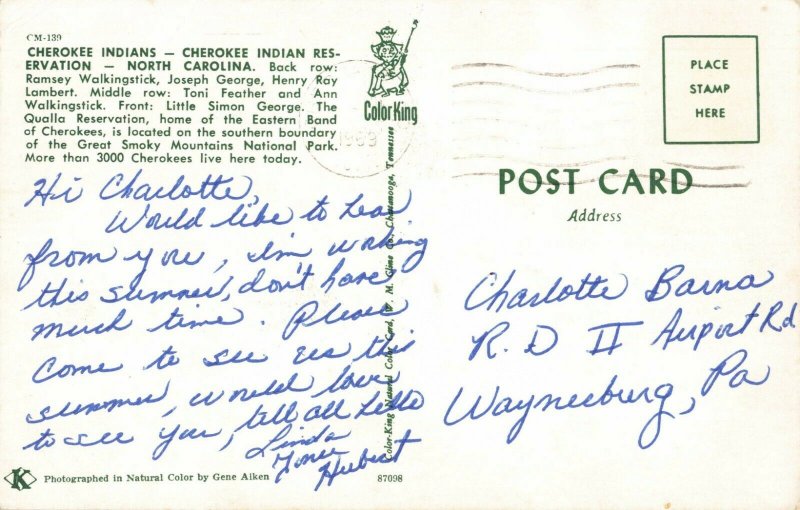 CM-139
CHEROKEE INDIANS — CHEROKEE INDIAN RES-
ERVATION — NORTH CAROLINA. Back row:
Ramsey Walkingstick, Joseph George, Henry Ray
Lambert. Middle row: Toni Feather and Ann
Walkingstick. Front: Little Simon George. The
Qualla Reservation, home of the Eastern Band
of Cherokees, is located on the southern boundary
of the Great Smoky Mountains National Park.
More than 3000 Cherokees live here today.
Hi Charlotte,
Would like to hear
from you, I'm working
this summer, don't have
much time. Please
come to see us this
summer, would love
to see you, tell all hello
Linda
Hubert
Photographed in Natural Color by Gene Aiken
87098
Color King
Color-King Natural Color Card, W. M. Cline Co., Chattanooga, Tennessee
1969
PLACE
STAMP
HERE
POST CARD
Address
Charlotte Barna
R. D II Airport Rd
Waynesburg, Pa
K